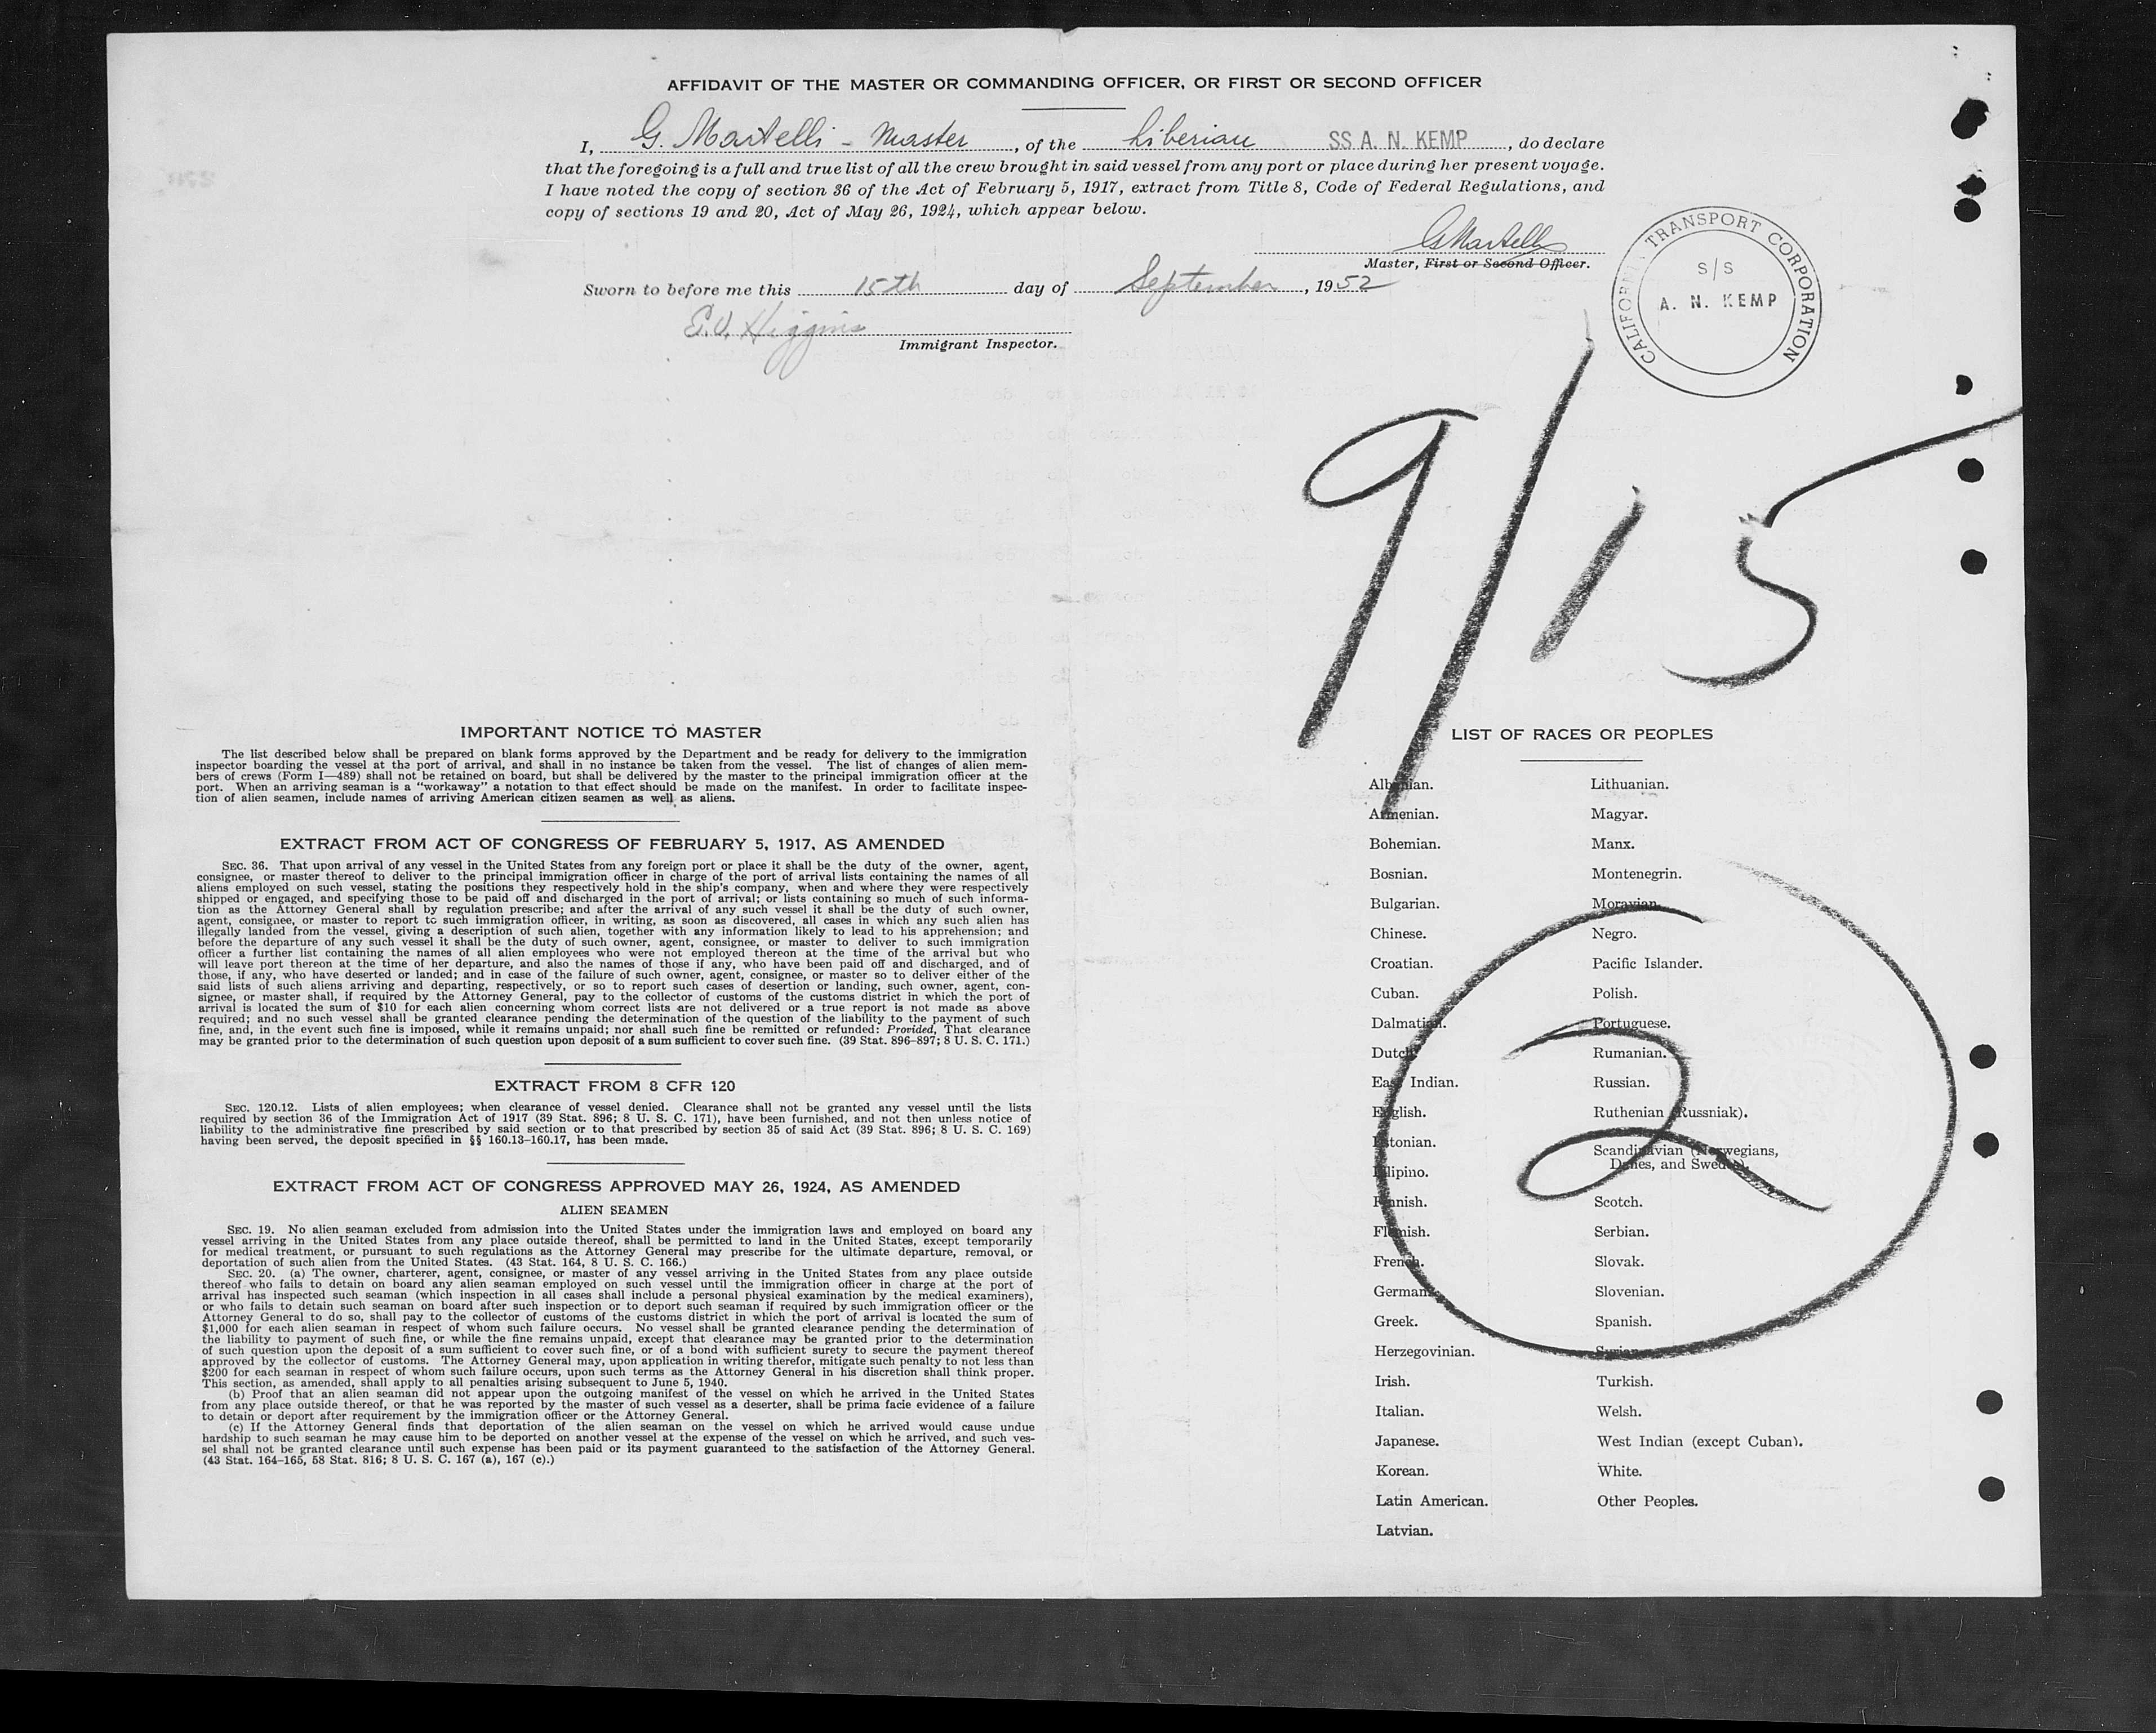 AFFIDAVIT OF THE MASTER OR COMMANDING OFFICER, OR FIRST OR SECOND OFFICER
I, G. Martelli - Master, of the Liberian SS A. N. KEMP, do declare
that the foregoing is a full and true list of all the crew brought in said vessel from any port or place during her present voyage.
I have noted the copy of section 36 of the Act of February 5, 1917, extract from Title 8, Code of Federal Regulations, and
copy of sections 19 and 20, Act of May 26, 1924, which appear below.
GMartelli
Master, First or Second Officer.
Sworn to before me this 15th day of September, 1952
E.V. Higgins
Immigrant Inspector.
CALIFORNIA TRANSPORT CORPORATION
S/S
A. N. KEMP
9/15
IMPORTANT NOTICE TO MASTER
The list described below shall be prepared on blank forms approved by the Department and be ready for delivery to the immigration
inspector boarding the vessel at the port of arrival, and shall in no instance be taken from the vessel. The list of changes of alien mem-
bers of crews (Form I—489) shall not be retained on board, but shall be delivered by the master to the principal immigration officer at the
port. When an arriving seaman is a "workaway" a notation to that effect should be made on the manifest. In order to facilitate inspec-
tion of alien seamen, include names of arriving American citizen seamen as well as aliens.
EXTRACT FROM ACT OF CONGRESS OF FEBRUARY 5, 1917, AS AMENDED
SEC. 36. That upon arrival of any vessel in the United States from any foreign port or place it shall be the duty of the owner, agent,
consignee, or master thereof to deliver to the principal immigration officer in charge of the port of arrival lists containing the names of all
aliens employed on such vessel, stating the positions they respectively hold in the ship's company, when and where they were respectively
shipped or engaged, and specifying those to be paid off and discharged in the port of arrival; or lists containing so much of such informa-
tion as the Attorney General shall by regulation prescribe; and after the arrival of any such vessel it shall be the duty of such owner,
agent, consignee, or master to report to such immigration officer, in writing, as soon as discovered, all cases in which any such alien has
illegally landed from the vessel, giving a description of such alien, together with any information likely to lead to his apprehension; and
before the departure of any such vessel it shall be the duty of such owner, agent, consignee, or master to deliver to such immigration
officer a further list containing the names of all alien employees who were not employed thereon at the time of the arrival but who
will leave port thereon at the time of her departure, and also the names of those if any, who have been paid off and discharged, and of
those, if any, who have deserted or landed; and in case of the failure of such owner, agent, consignee, or master so to deliver either of the
said lists of such aliens arriving and departing, respectively, or so to report such cases of desertion or landing, such owner, agent, con-
signee, or master shall, if required by the Attorney General, pay to the collector of customs of the customs district in which the port of
arrival is located the sum of $10 for each alien concerning whom correct lists are not delivered or a true report is not made as above
required; and no such vessel shall be granted clearance pending the determination of the question of the liability to the payment of such
fine, and, in the event such fine is imposed, while it remains unpaid; nor shall such fine be remitted or refunded: Provided, That clearance
may be granted prior to the determination of such question upon deposit of a sum sufficient to cover such fine. (39 Stat. 896-897; 8 U. S. C. 171.)
EXTRACT FROM 8 CFR 120
SEC. 120.12. Lists of alien employees; when clearance of vessel denied. Clearance shall not be granted any vessel until the lists
required by section 36 of the Immigration Act of 1917 (39 Stat. 896; 8 U. S. C. 171), have been furnished, and not then unless notice of
liability to the administrative fine prescribed by said section or to that prescribed by section 35 of said Act (39 Stat. 896; 8 U. S. C. 169)
having been served, the deposit specified in §§ 160.13-160.17, has been made.
EXTRACT FROM ACT OF CONGRESS APPROVED MAY 26, 1924, AS AMENDED
ALIEN SEAMEN
SEC. 19. No alien seaman excluded from admission into the United States under the immigration laws and employed on board any
vessel arriving in the United States from any place outside thereof, shall be permitted to land in the United States, except temporarily
for medical treatment, or pursuant to such regulations as the Attorney General may prescribe for the ultimate departure, removal, or
deportation of such alien from the United States. (43 Stat. 164, 8 U. S. C. 166.)
SEC. 20. (a) The owner, charterer, agent, consignee, or master of any vessel arriving in the United States from any place outside
thereof who fails to detain on board any alien seaman employed on such vessel until the immigration officer in charge at the port of
arrival has inspected such seaman (which inspection in all cases shall include a personal physical examination by the medical examiners),
or who fails to detain such seaman on board after such inspection or to deport such seaman if required by such immigration officer or the
Attorney General to do so, shall pay to the collector of customs of the customs district in which the port of arrival is located the sum of
$1,000 for each alien seaman in respect of whom such failure occurs. No vessel shall be granted clearance pending the determination of
the liability to payment of such fine, or while the fine remains unpaid, except that clearance may be granted prior to the determination
of such question upon the deposit of a sum sufficient to cover such fine, or of a bond with sufficient surety to secure the payment thereof
approved by the collector of customs. The Attorney General may, upon application in writing therefor, mitigate such penalty to not less than
$200 for each seaman in respect of whom such failure occurs, upon such terms as the Attorney General in his discretion shall think proper.
This section, as amended, shall apply to all penalties arising subsequent to June 5, 1940.
(b) Proof that an alien seaman did not appear upon the outgoing manifest of the vessel on which he arrived in the United States
from any place outside thereof, or that he was reported by the master of such vessel as a deserter, shall be prima facie evidence of a failure
to detain or deport after requirement by the immigration officer or the Attorney General.
(c) If the Attorney General finds that deportation of the alien seaman on the vessel on which he arrived would cause undue
hardship to such seaman he may cause him to be deported on another vessel at the expense of the vessel on which he arrived, and such ves-
sel shall not be granted clearance until such expense has been paid or its payment guaranteed to the satisfaction of the Attorney General.
(43 Stat. 164-165, 58 Stat. 816; 8 U. S. C. 167 (a), 167 (c).)
LIST OF RACES OR PEOPLES
Albanian.
Armenian.
Bohemian.
Bosnian.
Bulgarian.
Chinese.
Croatian.
Cuban.
Dalmatian.
Dutch.
East Indian.
English.
Estonian.
Filipino.
Finnish.
Flemish.
French.
German.
Greek.
Herzegovinian.
Irish.
Italian.
Japanese.
Korean.
Latin American.
Latvian.
Lithuanian.
Magyar.
Manx.
Montenegrin.
Moravian.
Negro.
Pacific Islander.
Polish.
Portuguese.
Rumanian.
Russian.
Ruthenian (Russniak).
Scandinavian (Norwegians,
Danes, and Swedes).
Scotch.
Serbian.
Slovak.
Slovenian.
Spanish.
Syrian.
Turkish.
Welsh.
West Indian (except Cuban).
White.
Other Peoples.
2